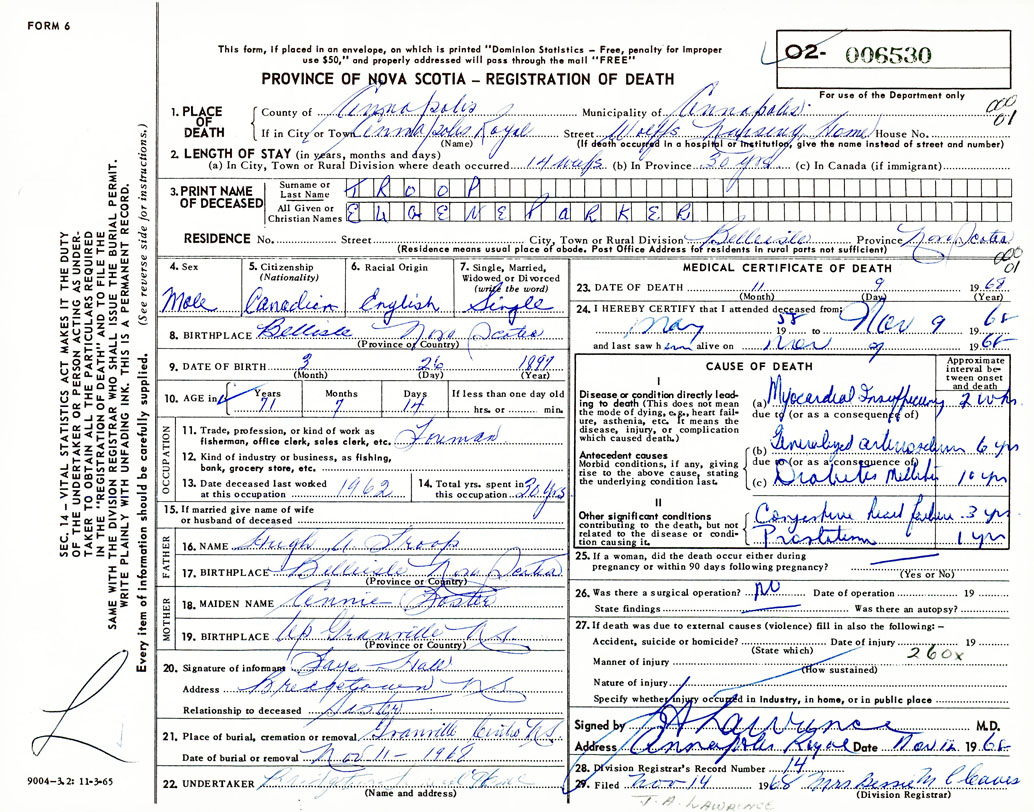 FORM 6
This form, if placed in an envelope, on which is printed "Dominion Statistics – Free, penalty for improper
use $50," and properly addressed will pass through the mail "FREE"
PROVINCE OF NOVA SCOTIA – REGISTRATION OF DEATH
02- 006530
For use of the Department only
000
01
1. PLACE OF DEATH
County of Annapolis Municipality of Annapolis
If in City or Town Annapolis Royal Street Wolffs Nursing Home House No.
(Name) (If death occurred in a hospital or institution, give the name instead of street and number)
2. LENGTH OF STAY (in years, months and days)
(a) In City, Town or Rural Division where death occurred 14 (b) In Province 50 yrs (c) In Canada (if immigrant)
3. PRINT NAME OF DECEASED
Surname or Last Name TROOP
All Given or Christian Names EUGENE PARKER
RESIDENCE No. Street City, Town or Rural Division Belleisle Province Nova Scotia
(Residence means usual place of abode. Post Office Address for residents in rural parts not sufficient)
000
01
4. Sex
Male
5. Citizenship (Nationality)
Canadian
6. Racial Origin
English
7. Single, Married, Widowed or Divorced (write the word)
Single
8. BIRTHPLACE Belleisle Nova Scotia
(Province or Country)
9. DATE OF BIRTH 3 26 1897
(Month) (Day) (Year)
10. AGE in Years Months Days If less than one day old
71 7 14 hrs. or min.
OCCUPATION
11. Trade, profession, or kind of work as
fisherman, office clerk, sales clerk, etc.
12. Kind of industry or business, as fishing,
bank, grocery store, etc.
13. Date deceased last worked at this occupation 1962
14. Total yrs. spent in this occupation yrs
15. If married give name of wife
or husband of deceased
FATHER
16. NAME Hugh A Troop
17. BIRTHPLACE Belleisle Nova Scotia
(Province or Country)
MOTHER
18. MAIDEN NAME Annie Foster
19. BIRTHPLACE Up Granville N.S.
(Province or Country)
20. Signature of informant Faye
Address Bridgetown N.S
Relationship to deceased Sister
21. Place of burial, cremation or removal Granville Centre N.S.
Date of burial or removal Nov 11 - 1968
22. UNDERTAKER
(Name and address)
MEDICAL CERTIFICATE OF DEATH
23. DATE OF DEATH 11 9 1968
(Month) (Day) (Year)
24. I HEREBY CERTIFY that I attended deceased from:
May 1958 to Nov 9 1968
and last saw him alive on Nov 9 1968
CAUSE OF DEATH
Approximate interval between onset and death
I
Disease or condition directly leading to death (This does not mean
the mode of dying, e.g., heart failure, asthenia, etc. It means the
disease, injury, or complication
which caused death.)
(a) Myocardial Insufficiency 2 wks.
due to (or as a consequence of)
Antecedent causes
Morbid conditions, if any, giving
rise to the above cause, stating
the underlying condition last.
(b) Generalized 6 yrs
due to (or as a consequence of)
(c) Diabetes Mellitus 10 yrs
II
Other significant conditions
contributing to the death, but not
related to the disease or condition causing it.
Congestive heart failure 3 yrs
1 yrs
25. If a woman, did the death occur either during
pregnancy or within 90 days following pregnancy?
(Yes or No)
26. Was there a surgical operation? No Date of operation 19
State findings Was there an autopsy?
27. If death was due to external causes (violence) fill in also the following:–
Accident, suicide or homicide? Date of injury 19
(State which)
260x
Manner of injury
(How sustained)
Nature of injury
Specify whether injury occurred in Industry, in home, or in public place
Signed by Lawrence M.D.
Address Annapolis Royal Date Nov 12 1968
28. Division Registrar's Record Number 14
29. Filed Nov 14 1968 Mrs Bessie M Cleaves
(Division Registrar)
J. A. LAWRENCE
SEC. 14 – VITAL STATISTICS ACT MAKES IT THE DUTY
OF THE UNDERTAKER OR PERSON ACTING AS UNDER-
TAKER TO OBTAIN ALL THE PARTICULARS REQUIRED
IN THE "REGISTRATION OF DEATH" AND TO FILE THE
SAME WITH THE DIVISION REGISTRAR WHO SHALL ISSUE THE BURIAL PERMIT.
WRITE PLAINLY WITH UNFADING INK. THIS IS A PERMANENT RECORD.
Every item of information should be carefully supplied. (See reverse side for instructions.)
9004-3.2: 11-3-65